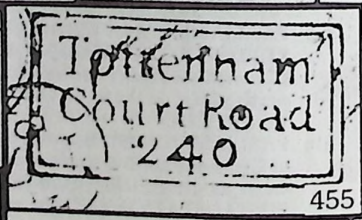 Tottenham
Court Road
240
455